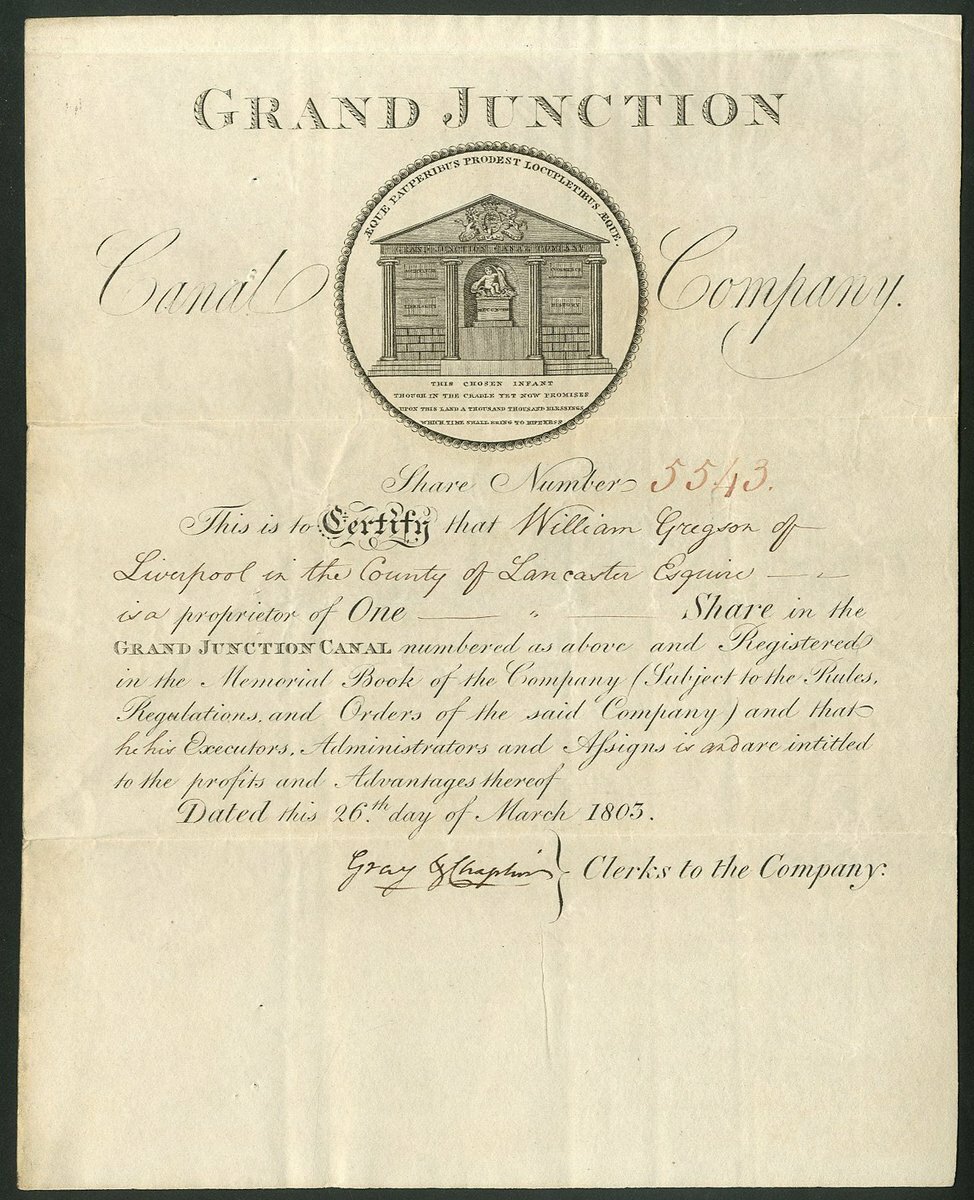 GRAND JUNCTION
ÆQUE PAUPERIBUS PRODEST LOCUPLETIBUS ÆQUE.
Canal Company.
GRAND JUNCTION CANAL COMPANY
COMMERCE
HISTORY
THIS CHOSEN INFANT
THOUGH IN THE CRADLE YET NOW PROMISES
UPON THIS LAND A THOUSAND THOUSAND BLESSINGS
WHICH TIME SHALL BRING TO RIPENESS
Share Number 5543.
This is to Certify that William Gregson of
Liverpool in the County of Lancaster Esquire
is a proprietor of One — " — Share in the
GRAND JUNCTION CANAL numbered as above and Registered
in the Memorial Book of the Company (Subject to the Rules,
Regulations, and Orders of the said Company) and that
he his Executors, Administrators and Aſsigns is and are intitled
to the profits and Advantages thereof
Dated this 26.th day of March 1803.
Gray & Chaplin } Clerks to the Company: